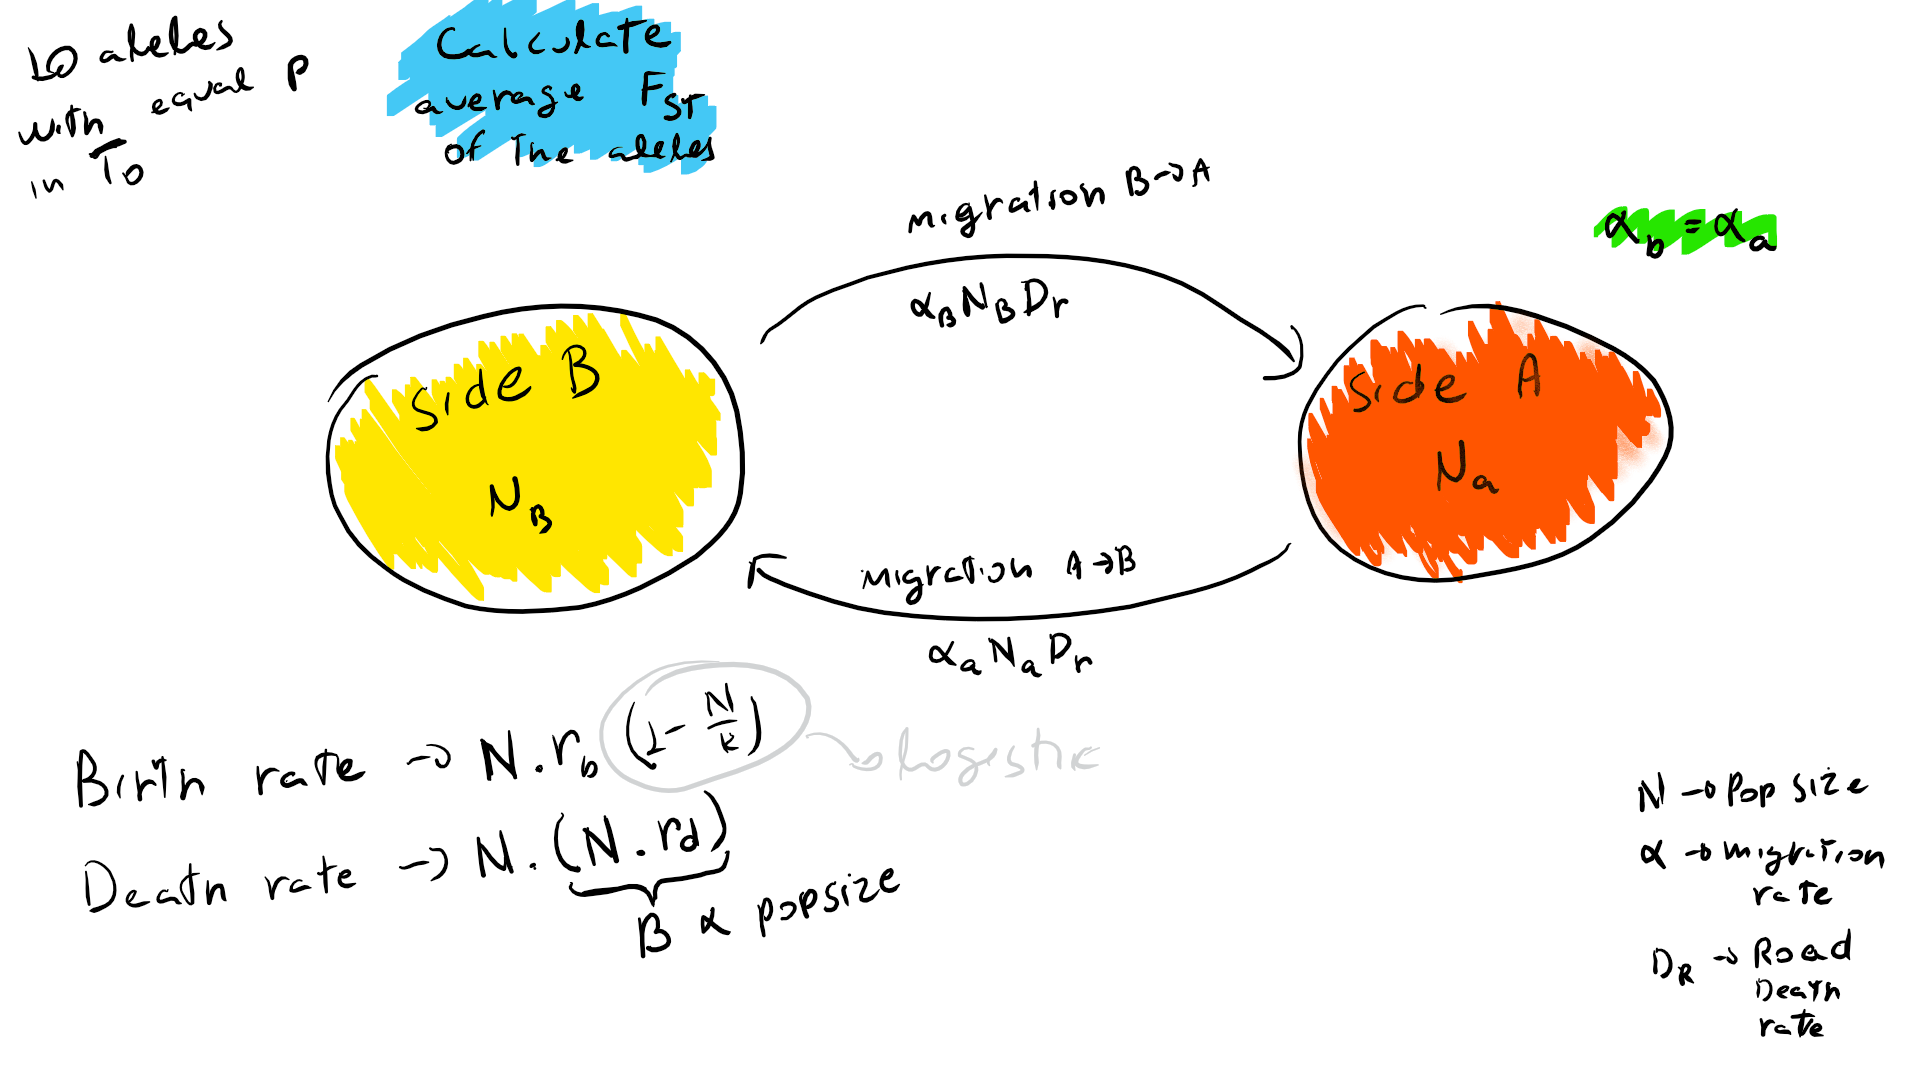 10 aleles
with equal p
in T₀
Calculate
average F_ST
of the aleles
migration B→A
α_B N_B D_r
α_b = α_a
Side B
N_B
Side A
N_a
migration A→B
α_a N_a D_r
Birth rate → N . r_b (1 - N/k)
logistic
Death rate → N . (N . r_d)
B ∝ popsize
N → Pop size
α → migration
rate
D_R → Road
Death
rate